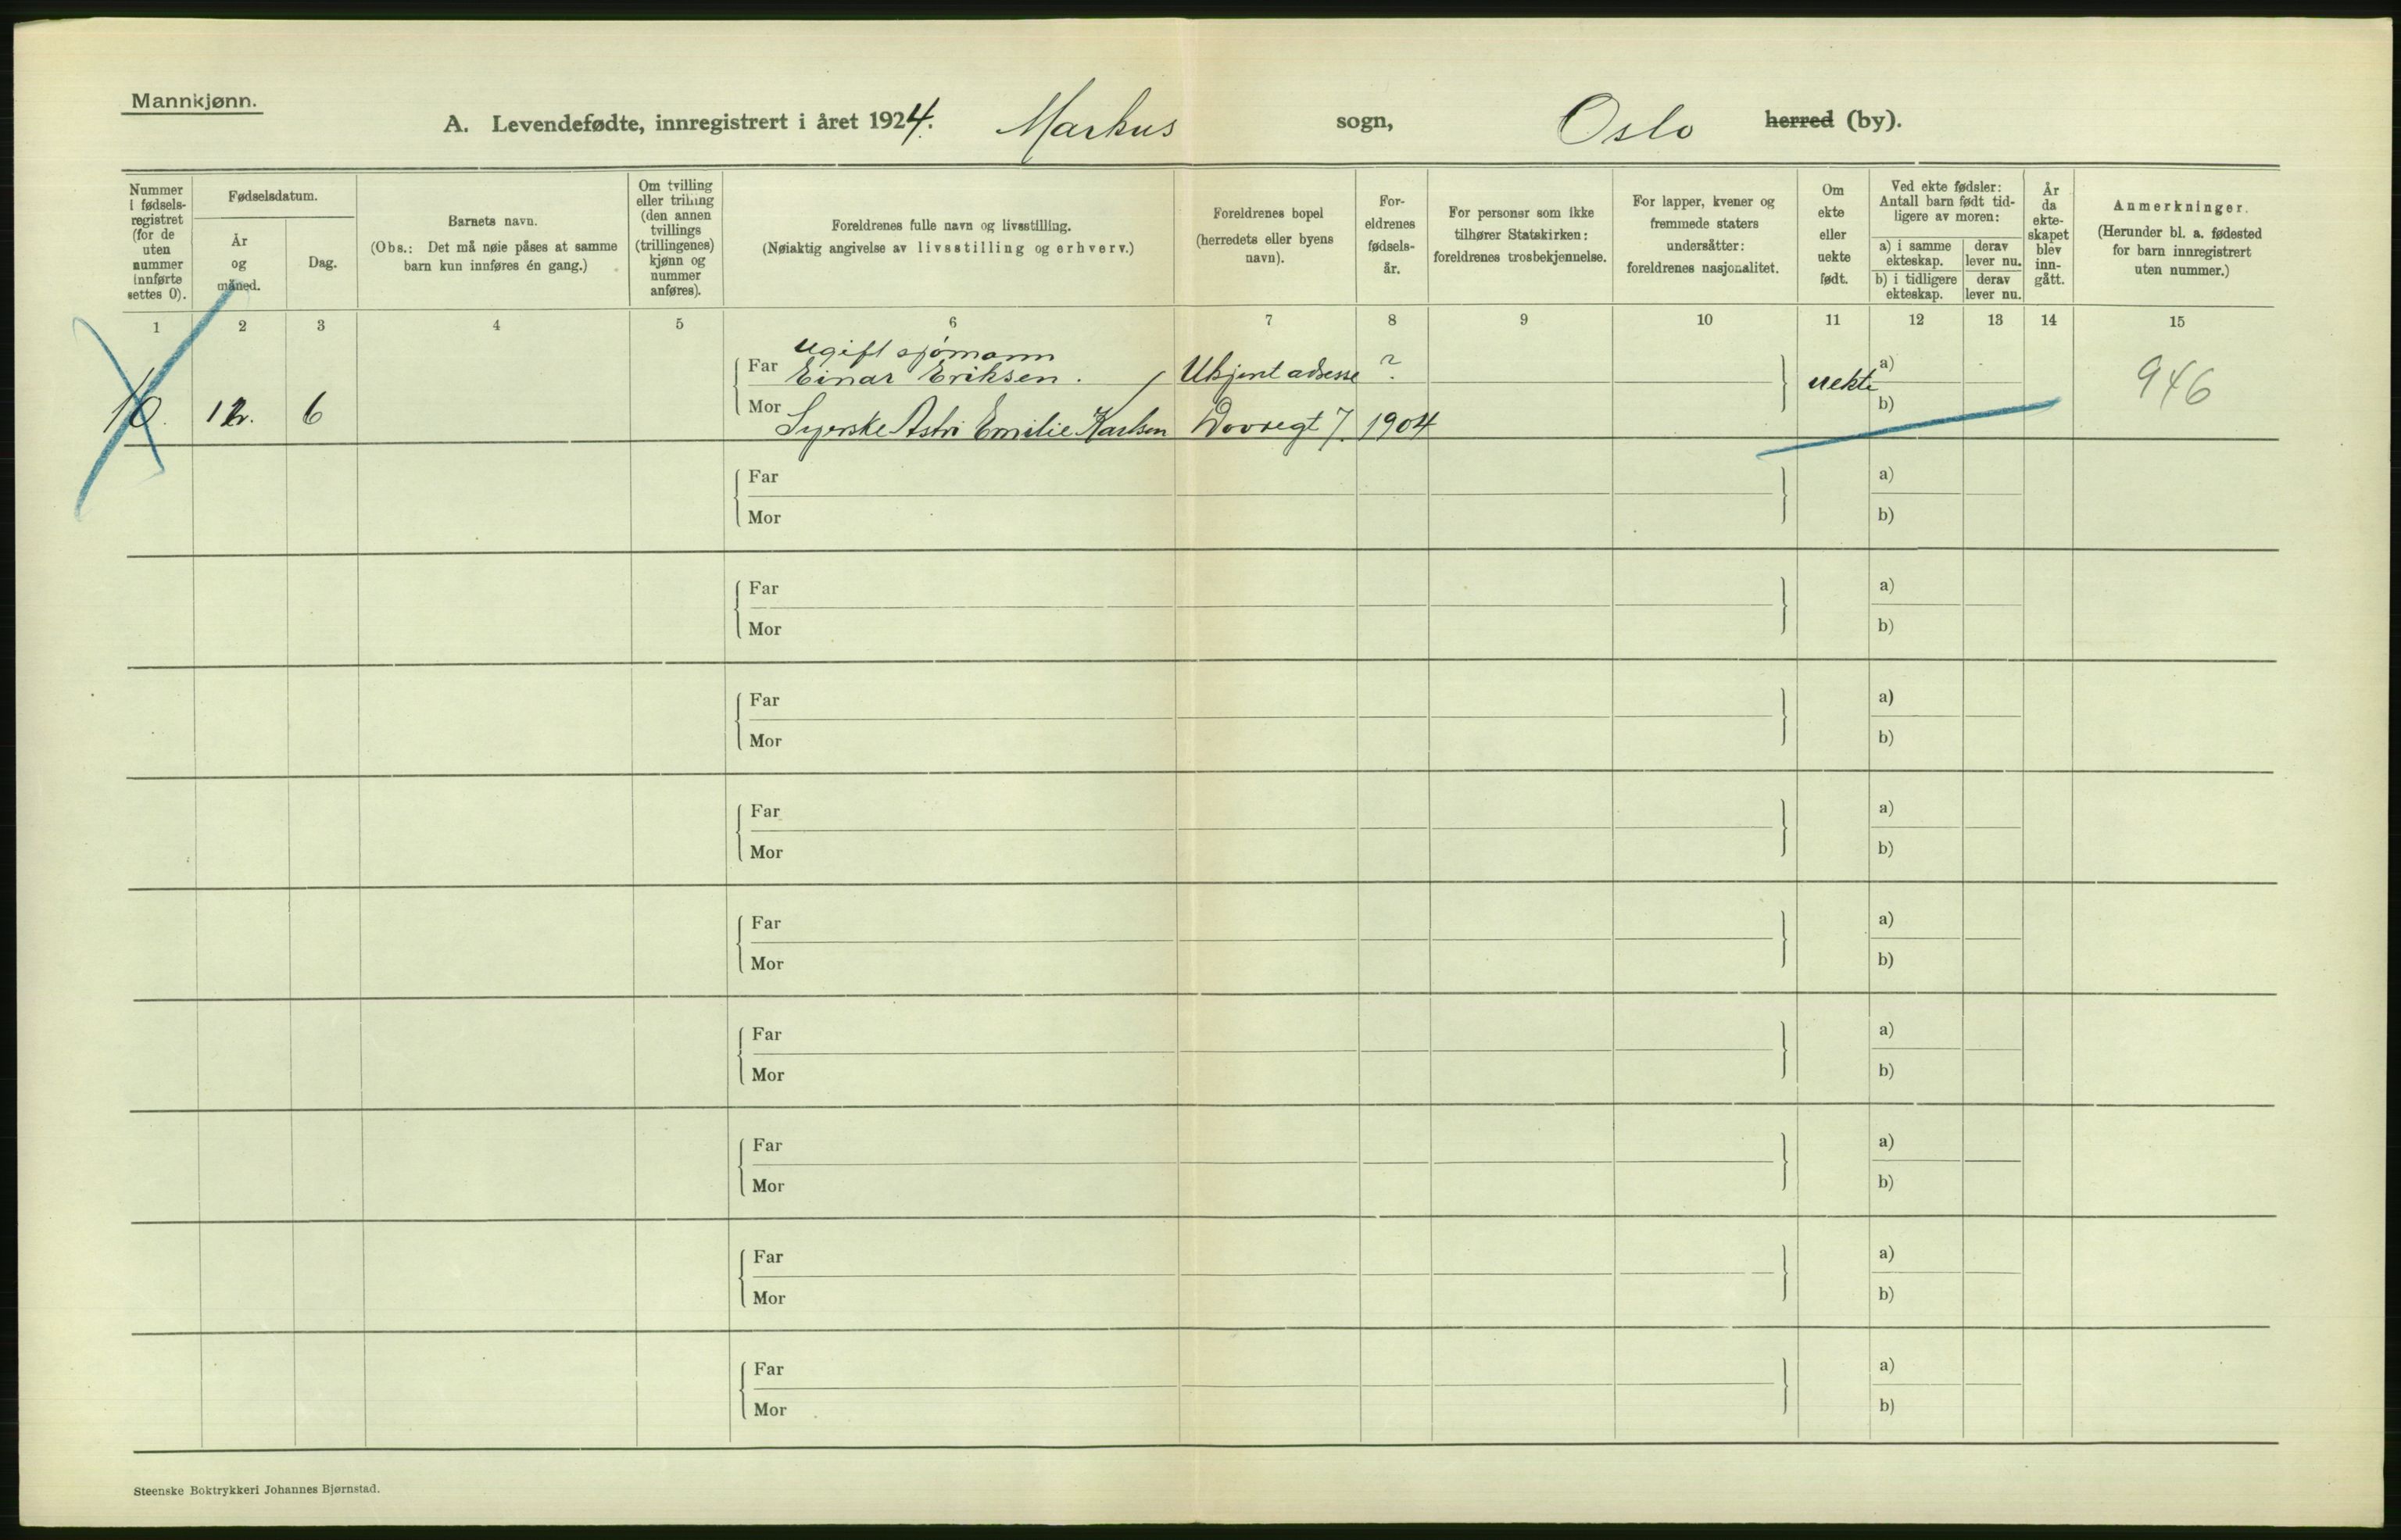 Mannkjønn.
A. Levendefødte, innregistrert i året 1924. Markus sogn, Oslo herred (by).
Nummer
i fødsels-
registret
(for de
uten
nummer
innførte
settes 0).
Fødselsdatum.
År
og
måned.
Dag.
Barnets navn.
(Obs.: Det må nøie påses at samme
barn kun innføres én gang.)
Om tvilling
eller trilling
(den annen
tvillings
(trillingenes)
kjønn og
nummer
anføres).
Foreldrenes fulle navn og livsstilling.
(Nøiaktig angivelse av livsstilling og erhverv.)
Foreldrenes bopel
(herredets eller byens
navn).
For-
eldrenes
fødsels-
år.
For personer som ikke
tilhører Statskirken:
foreldrenes trosbekjennelse.
For lapper, kvener og
fremmede staters
undersåtter:
foreldrenes nasjonalitet.
Om
ekte
eller
uekte
født.
Ved ekte fødsler:
Antall barn født tid-
ligere av moren:
a) i samme
ekteskap.
derav
lever nu.
b) i tidligere
ekteskap.
derav
lever nu.
År
da
ekte-
skapet
blev
inn-
gått.
Anmerkninger.
(Herunder bl. a. fødested
for barn innregistrert
uten nummer.)
1 2 3 4 5 6 7 8 9 10 11 12 13 14 15
ugift sjømann
Far Einar Eriksen. Ukjent adresse ? uekte a) 946
10. 12. 6 Mor Syerske Astri Emilie Karlsen Dovregt 7. 1904 b)
Far a)
Mor b)
Far a)
Mor b)
Far a)
Mor b)
Far a)
Mor b)
Far a)
Mor b)
Far a)
Mor b)
Far a)
Mor b)
Far a)
Mor b)
Far a)
Mor b)
Steenske Boktrykkeri Johannes Bjørnstad.